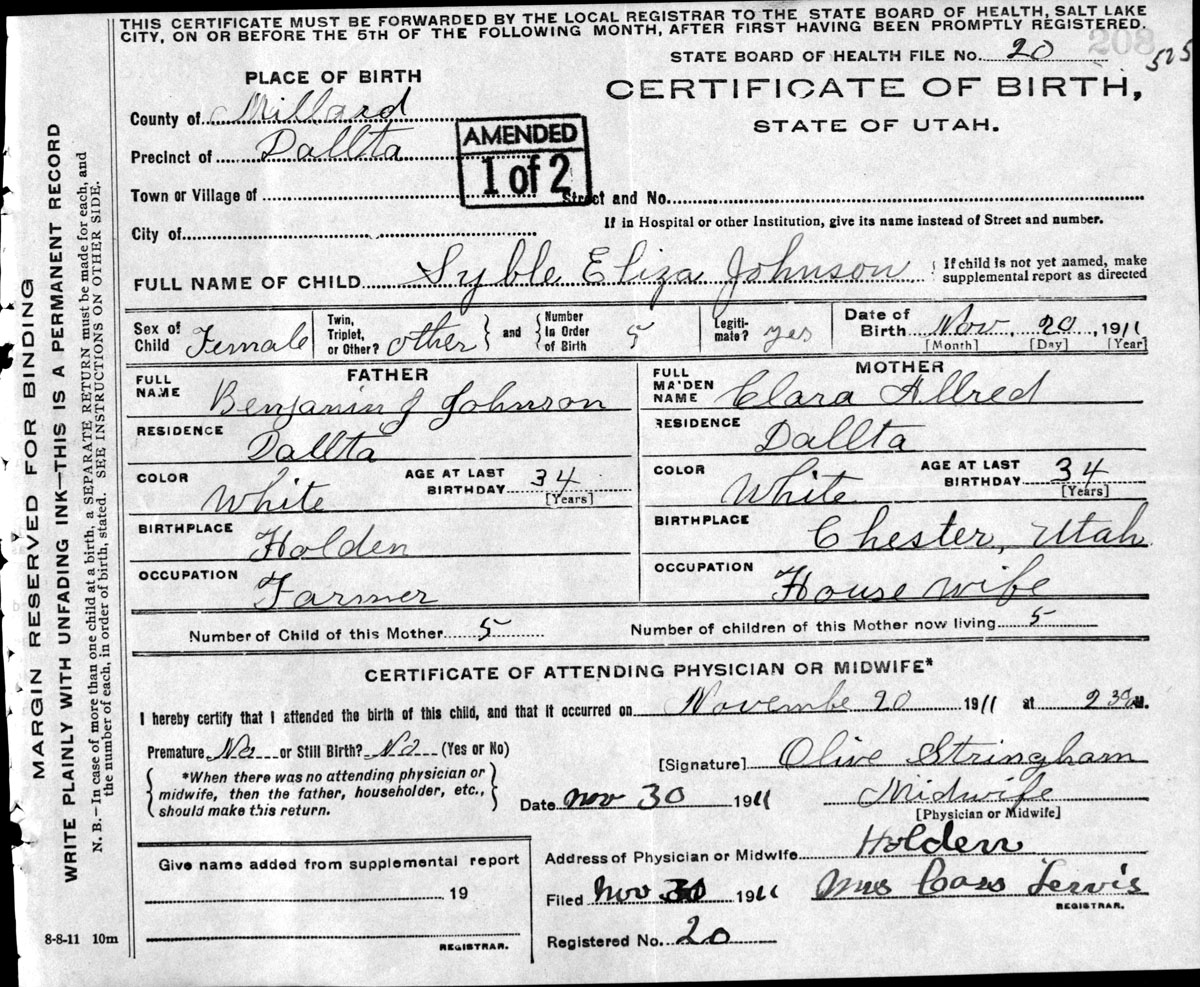 THIS CERTIFICATE MUST BE FORWARDED BY THE LOCAL REGISTRAR TO THE STATE BOARD OF HEALTH, SALT LAKE
CITY, ON OR BEFORE THE 5TH OF THE FOLLOWING MONTH, AFTER FIRST HAVING BEEN PROMPTLY REGISTERED.
208
STATE BOARD OF HEALTH FILE No. 20 525
PLACE OF BIRTH
CERTIFICATE OF BIRTH,
STATE OF UTAH.
County of Millard
Precinct of Dallta
AMENDED
1 of 2
Town or Village of
Street and No.
City of
If in Hospital or other Institution, give its name instead of Street and number.
FULL NAME OF CHILD Syble Eliza Johnson
If child is not yet named, make
supplemental report as directed
Sex of Child Female
Twin, Triplet, or Other? other
and Number In Order of Birth 5
Legiti-mate? yes
Date of Birth Nov, 20, 1911
[Month] [Day] [Year]
FATHER
FULL NAME Benjamin J Johnson
RESIDENCE Dallta
COLOR White
AGE AT LAST BIRTHDAY 34
[Years]
BIRTHPLACE Holden
OCCUPATION Farmer
MOTHER
FULL MAIDEN NAME Clara Allred
RESIDENCE Dallta
COLOR White
AGE AT LAST BIRTHDAY 34
[Years]
BIRTHPLACE Chester, Utah
OCCUPATION House wife
Number of Child of this Mother 5
Number of children of this Mother now living 5
CERTIFICATE OF ATTENDING PHYSICIAN OR MIDWIFE*
I hereby certify that I attended the birth of this child, and that it occurred on Novembe 20 1911 at 2 30 M.
Premature No or Still Birth? No (Yes or No)
*When there was no attending physician or
midwife, then the father, householder, etc.,
should make this return.
[Signature] Olive Stringham
Date Nov 30 1911
Midwife
[Physician or Midwife]
Give name added from supplemental report
19
REGISTRAR.
Address of Physician or Midwife Holden
Filed Nov 30 1911 Mrs
REGISTRAR.
Registered No. 20
8-8-11 10m
MARGIN RESERVED FOR BINDING
WRITE PLAINLY WITH UNFADING INK—THIS IS A PERMANENT RECORD
N. B.—In case of more than one child at a birth, a SEPARATE RETURN must be made for each, and
the number of each, in order of birth, stated. SEE INSTRUCTIONS ON OTHER SIDE.